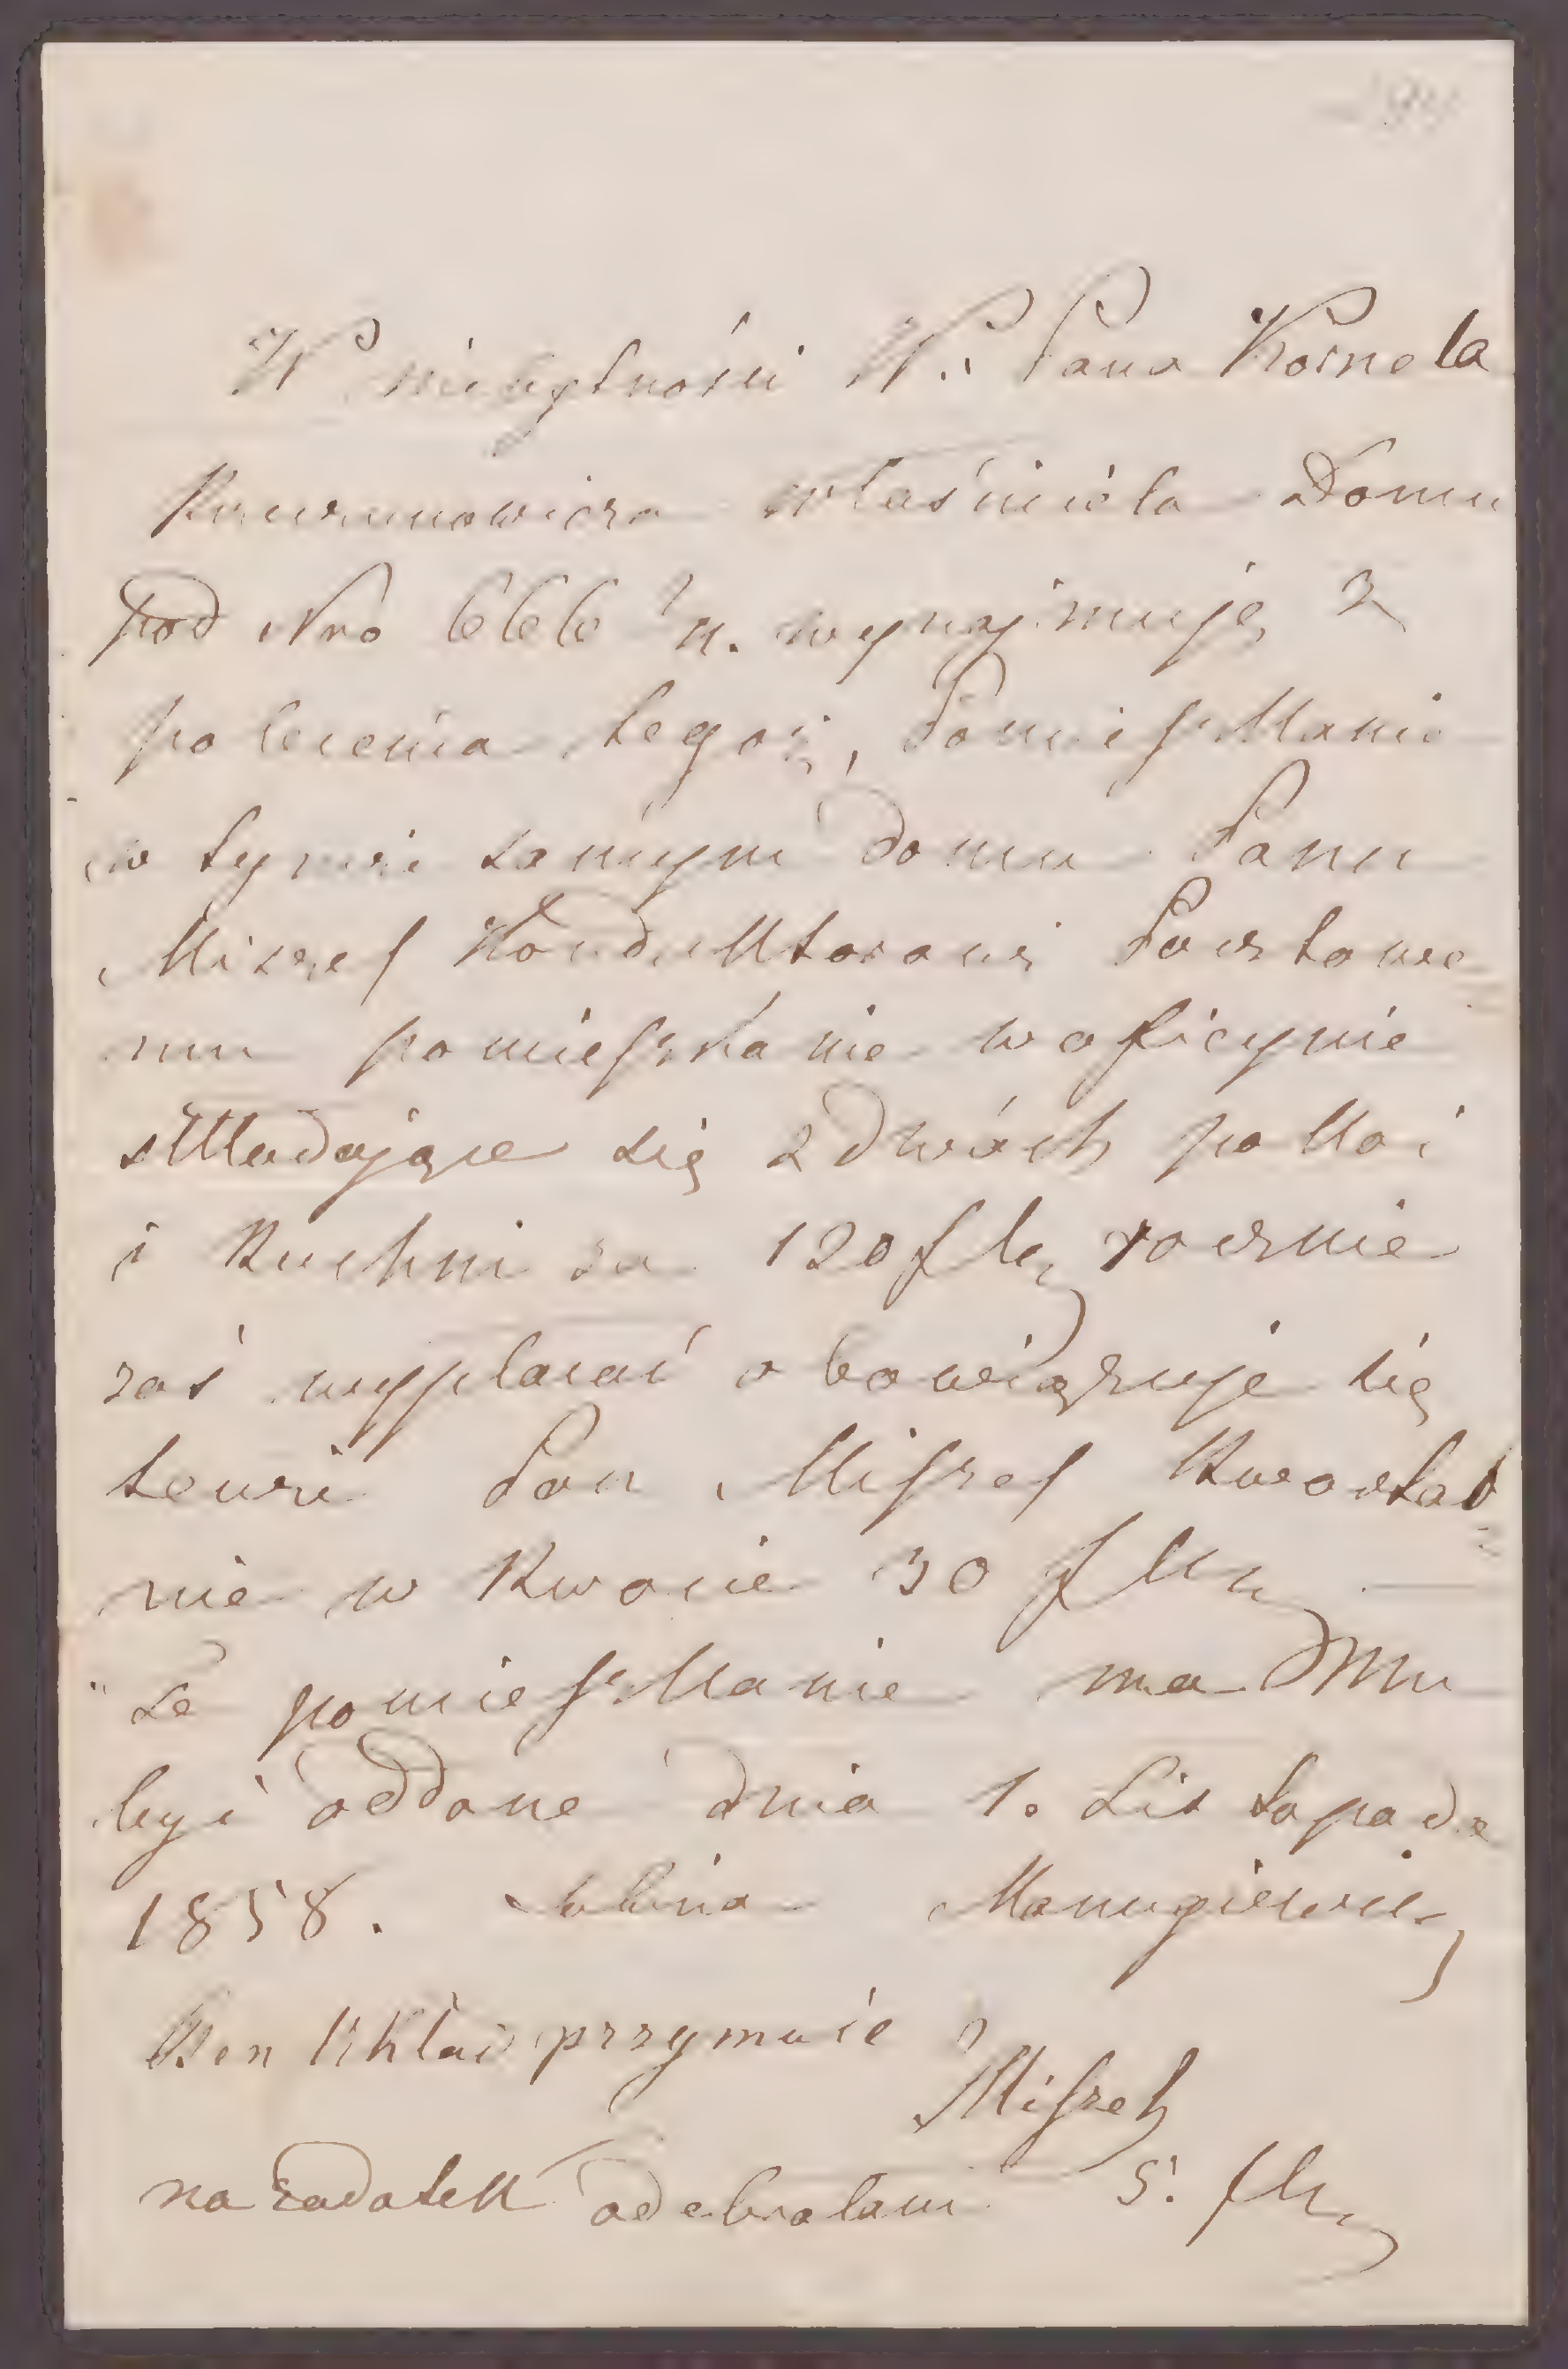 W niebytności W. Pana Kornela
własciciela Domu
pod Nro 666 n. wynajmuję z
polecenia tegoż, Pomieszkanie
w tymże samym domu Panu
Miszef Konduktorowi Pocztowe=
mu pomieszkanie w oficynie
składające się z dwóch pokoi
i kuchni za 120 f rocznie
zaś wypłacać obowiązuje się
tenże Pan Miszef Kwartal=
nie w kwocie 30 f
Te pomieszkanie ma Mu
być oddone dnia 1. Listopada
1858. Manugiewicz
Ten Układ przymuie
Miszef
na zadatek odebrałam 5. f